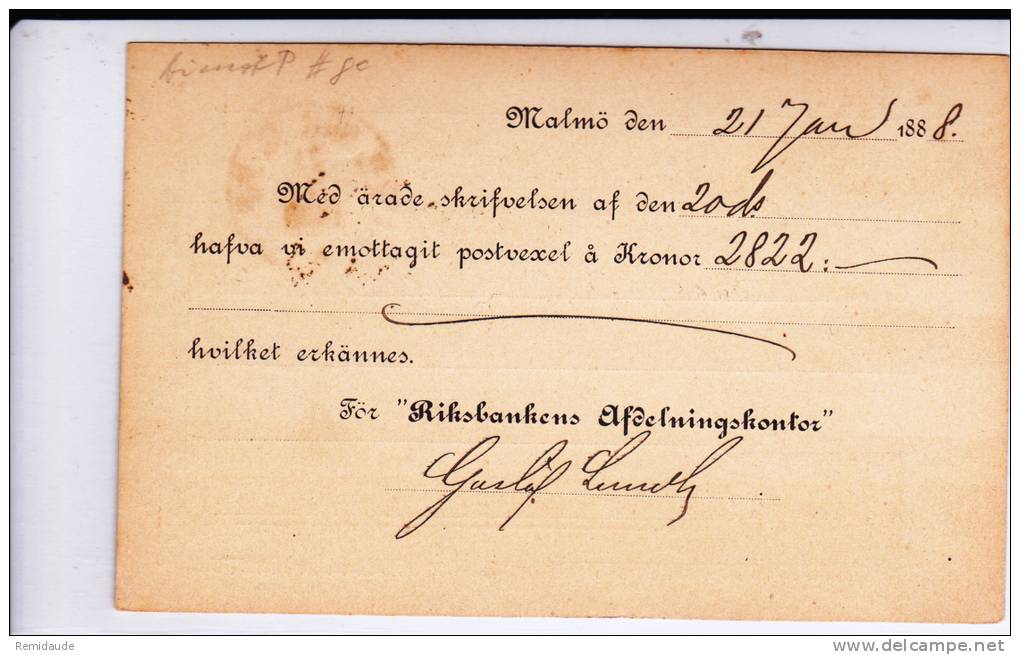 Malmö den 21 Jan 1888.
Med ärade skrifvelsen af den 20 ds.
hafva vi emottagit postvexel å Kronor 2822:—
hvilket erkännes.
För "Riksbankens Afdelningskontor"
Gustaf Lundh
Remidaude
www.delcampe.net